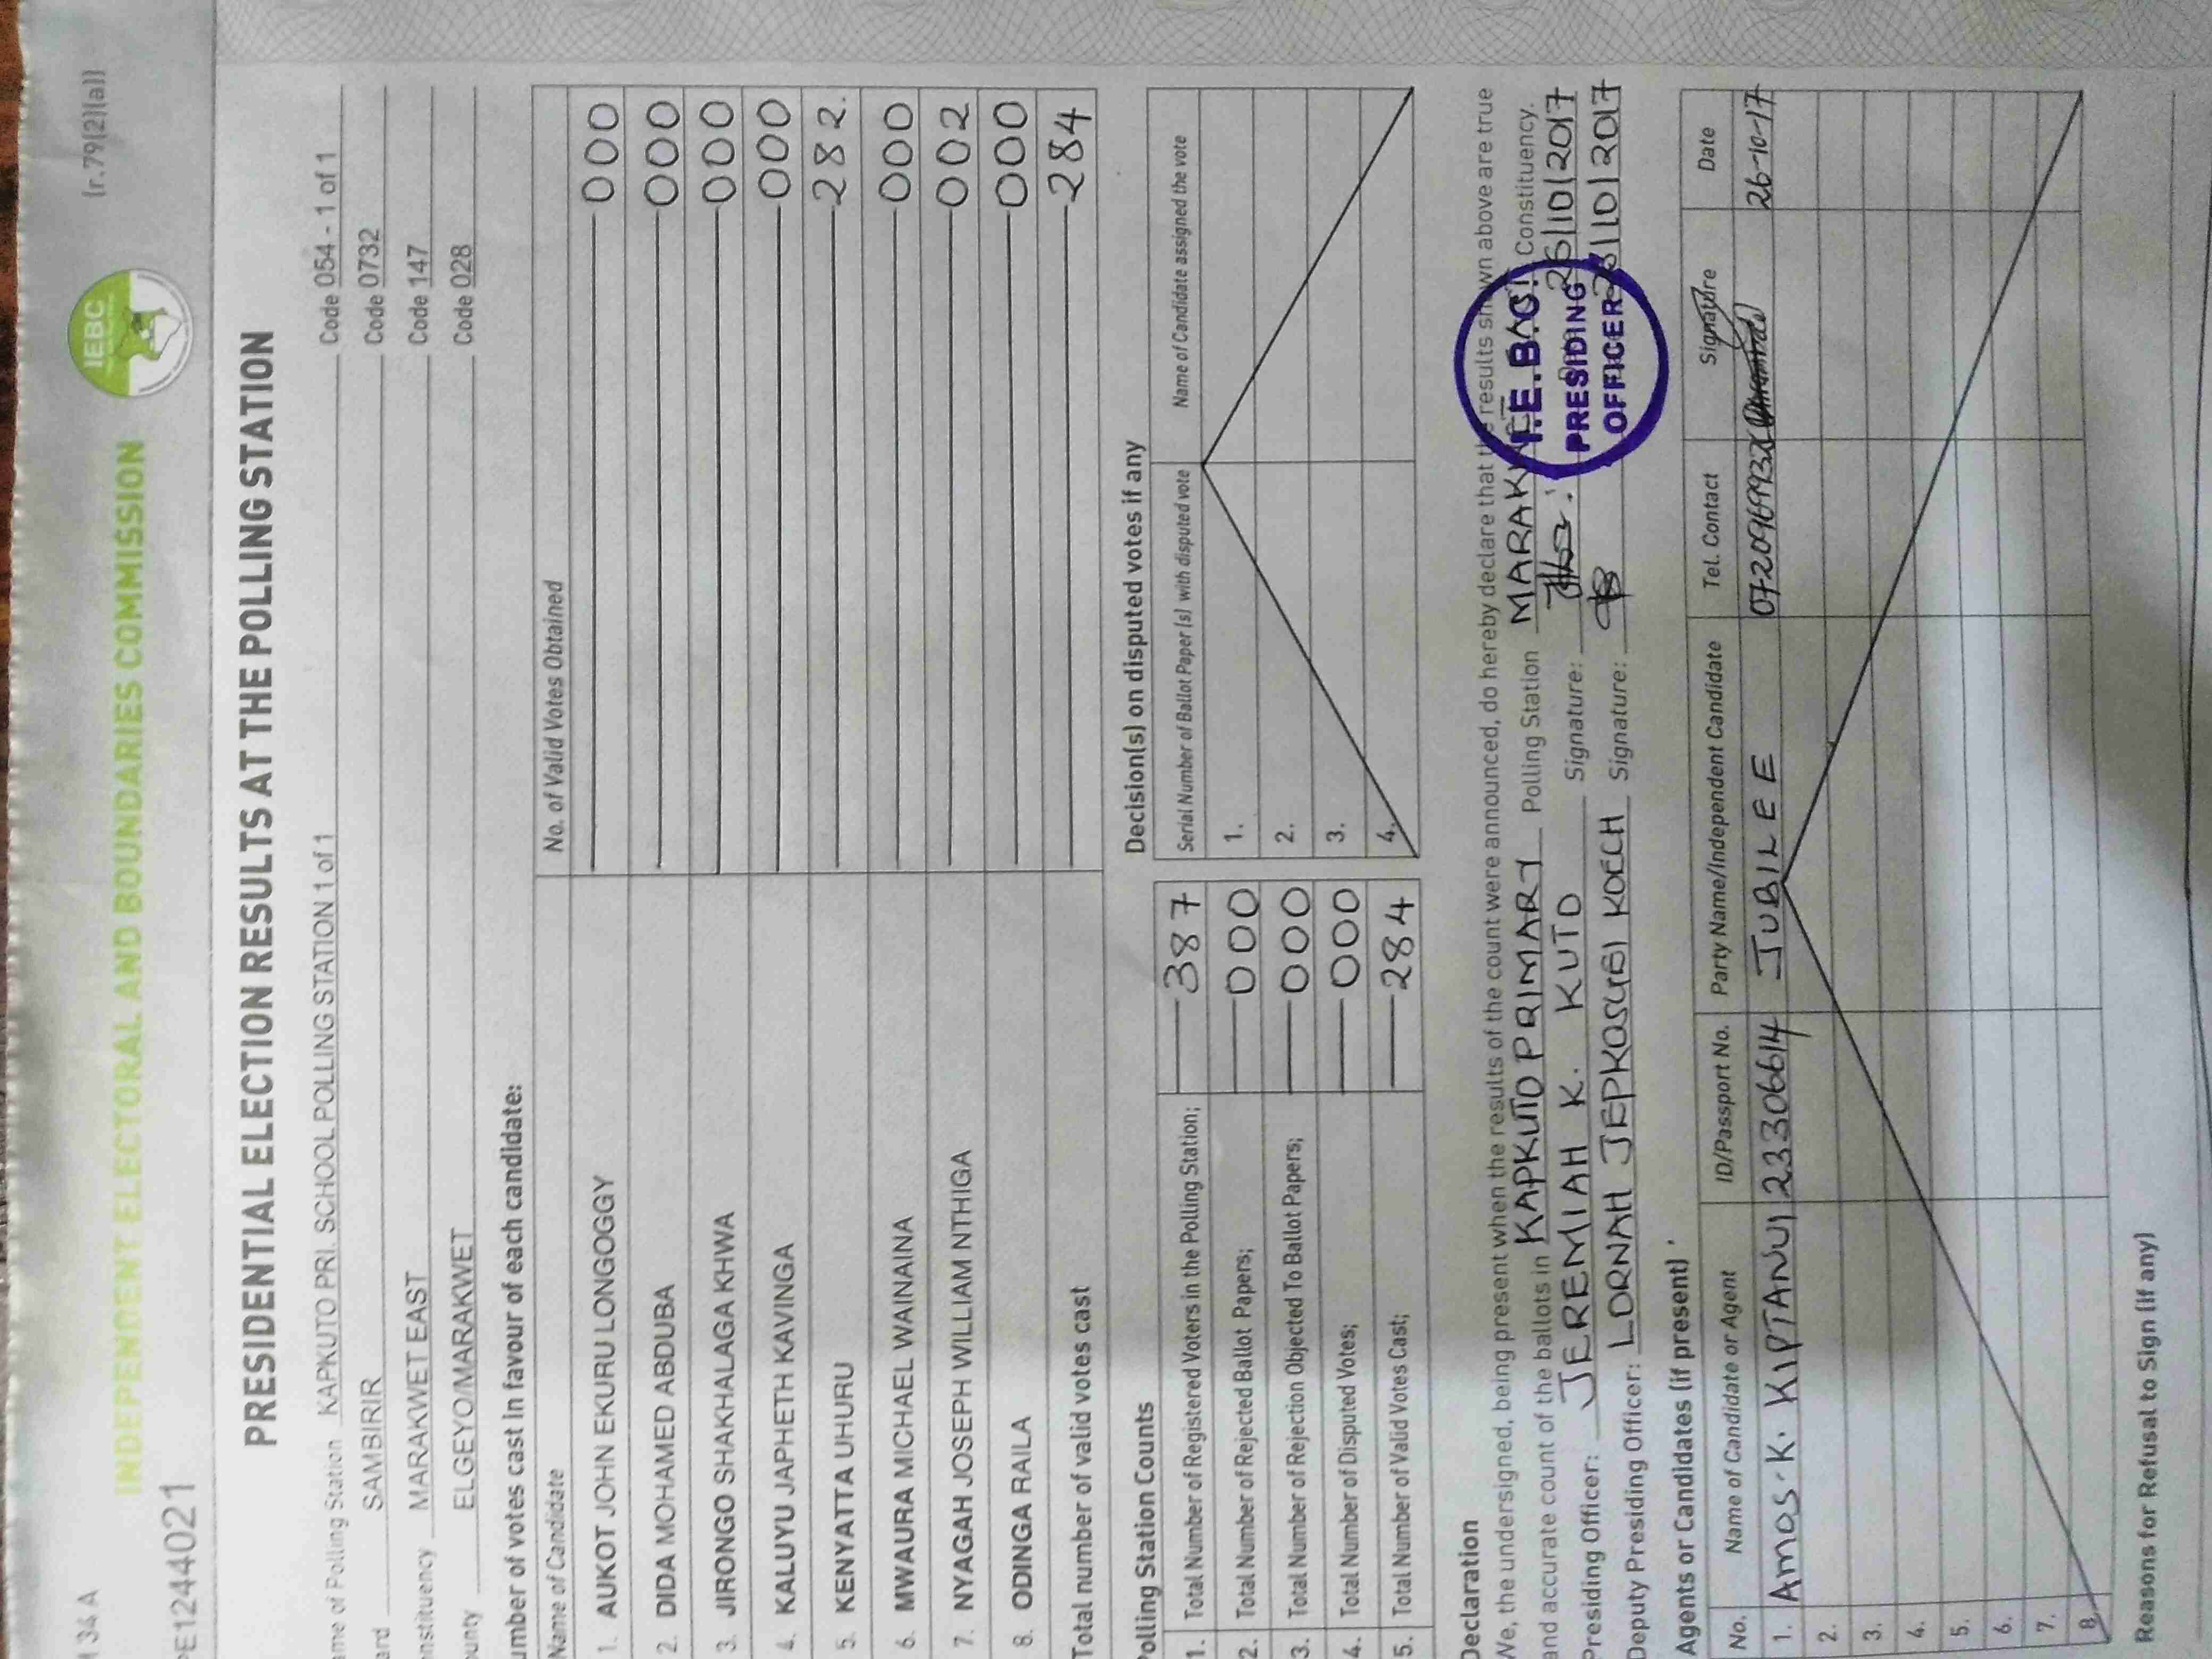 34 A
(r.79(2)(a))
INDEPENDENT ELECTORAL AND BOUNDARIES COMMISSION
IEBC
PE1244021
PRESIDENTIAL ELECTION RESULTS AT THE POLLING STATION
ame of Polling Station KAPKUTO PRI. SCHOOL POLLING STATION 1 of 1 Code 054 - 1 of 1
ard SAMBIRIR Code 0732
nstituency MARAKWET EAST Code 147
ounty ELGEYO/MARAKWET Code 028
umber of votes cast in favour of each candidate:
Name of Candidate No. of Valid Votes Obtained
1. AUKOT JOHN EKURU LONGOGGY 000
2. DIDA MOHAMED ABDUBA 000
3. JIRONGO SHAKHALAGA KHWA 000
4. KALUYU JAPHETH KAVINGA 000
5. KENYATTA UHURU 282.
6. MWAURA MICHAEL WAINAINA 000
7. NYAGAH JOSEPH WILLIAM NTHIGA 002
8. ODINGA RAILA 000
Total number of valid votes cast 284
Polling Station Counts
1. Total Number of Registered Voters in the Polling Station; 387
2. Total Number of Rejected Ballot Papers; 000
3. Total Number of Rejection Objected To Ballot Papers; 000
4. Total Number of Disputed Votes; 000
5. Total Number of Valid Votes Cast; 284
Decision(s) on disputed votes if any
Serial Number of Ballot Paper (s) with disputed vote Name of Candidate assigned the vote
1.
2.
3.
4.
Declaration
We, the undersigned, being present when the results of the count were announced, do hereby declare that the results shown above are true
and accurate count of the ballots in KAPKUTO PRIMARY Polling Station Constituency.
Presiding Officer: JEREMIAH K. KUTO Signature: 26/10/2017
Deputy Presiding Officer: LORNAH JEPKOSGEI KOECH Signature: /10/2017
I.E.B.C.
PRESIDING
OFFICER
Agents or Candidates (if present)
No. Name of Candidate or Agent ID/Passport No. Party Name/Independent Candidate Tel. Contact Signature Date
1. AMOS K. KIPTANUI 23306614 JUBILEE 26-10-17
2.
3.
4.
5.
6.
7.
8.
Reasons for Refusal to Sign (if any)